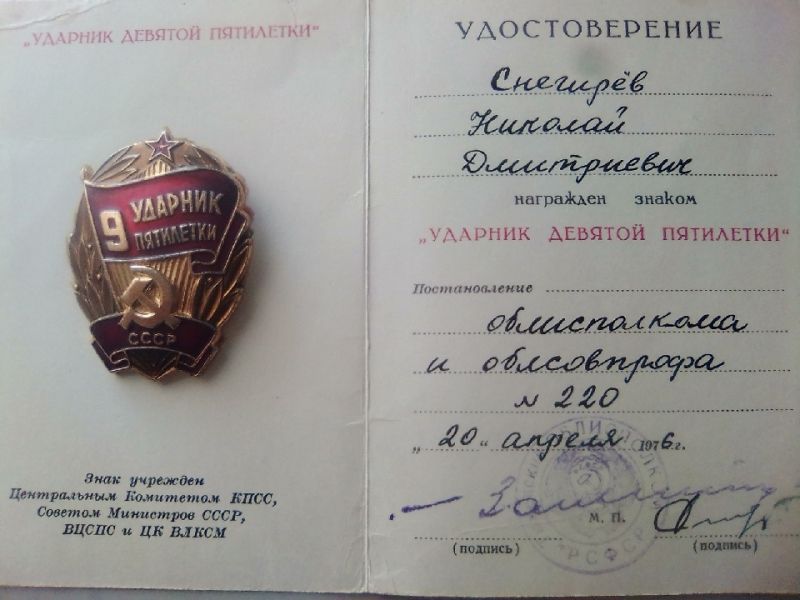 „УДАРНИК ДЕВЯТОЙ ПЯТИЛЕТКИ“
9 УДАРНИК
ПЯТИЛЕТКИ
СССР
Знак учрежден
Центральным Комитетом КПСС,
Советом Министров СССР,
ВЦСПС и ЦК ВЛКСМ
УДОСТОВЕРЕНИЕ
Снегирёв
Николай
Дмитриевич
награжден знаком
„УДАРНИК ДЕВЯТОЙ ПЯТИЛЕТКИ“
Постановление
облисполкома
и облсовпрофа
№ 220
„20“ апреля 1976 г.
М. П.
(подпись) (подпись)
РСФСР